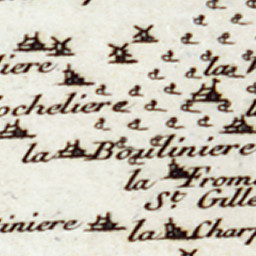 liere
la
ocheliere
la Bouliniere
la From
St. Gille
iniere
la Charp